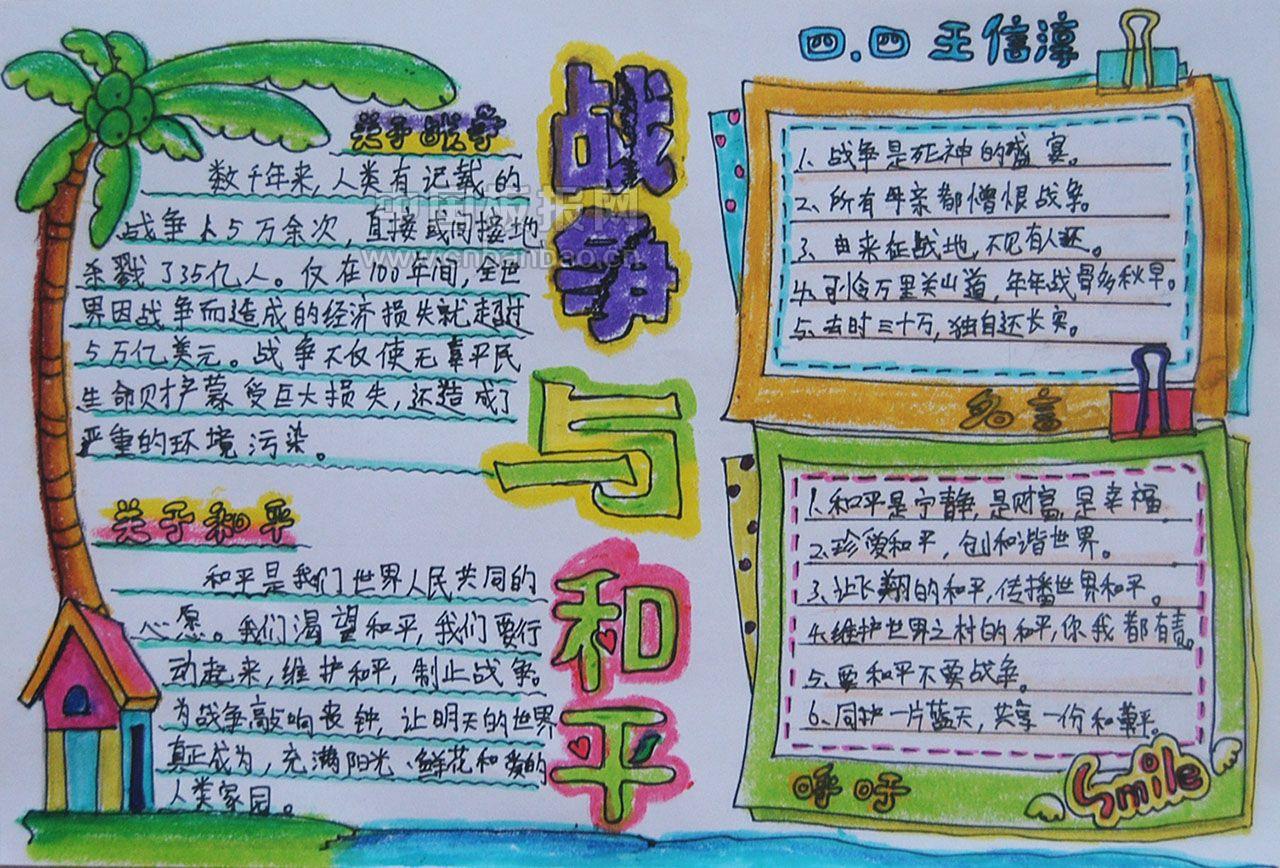 四.四 王信淳
战争与和平
关于战争
数千年来,人类有记载的
战争人5万余次,直接或间接地
杀戮了35亿人。仅在100年间,全世
界因战争而造成的经济损失就起过
5万亿美元。战争不仅使无辜平民
生命财产蒙受巨大损失,还造成了
严重的环境污染。
关于和平
和平是我们世界人民共同的
心愿。我们渴望和平,我们要行
动起来,维护和平,制止战争。
为战争敲响丧钟,让明天的世界
真正成为,充满阳光、鲜花和爱的
人类家园。
1、战争是死神的盛宴。
2、所有母亲都憎恨战争。
3、由来征战地,不见有人还。
4、可怜万里关山道,年年战骨多秋草。
5、去时三十万,独自还长安。
名言
1、和平是宁静,是财富,是幸福
2、珍爱和平,创和谐世界。
3、让飞翔的和平,传播世界和平。
4、维护世界之村的和平,你我都有责。
5、要和平不要战争。
6、同护一片蓝天,共享一份和平。
呼吁
Smile
中国板报网
www.cnbanbao.cn